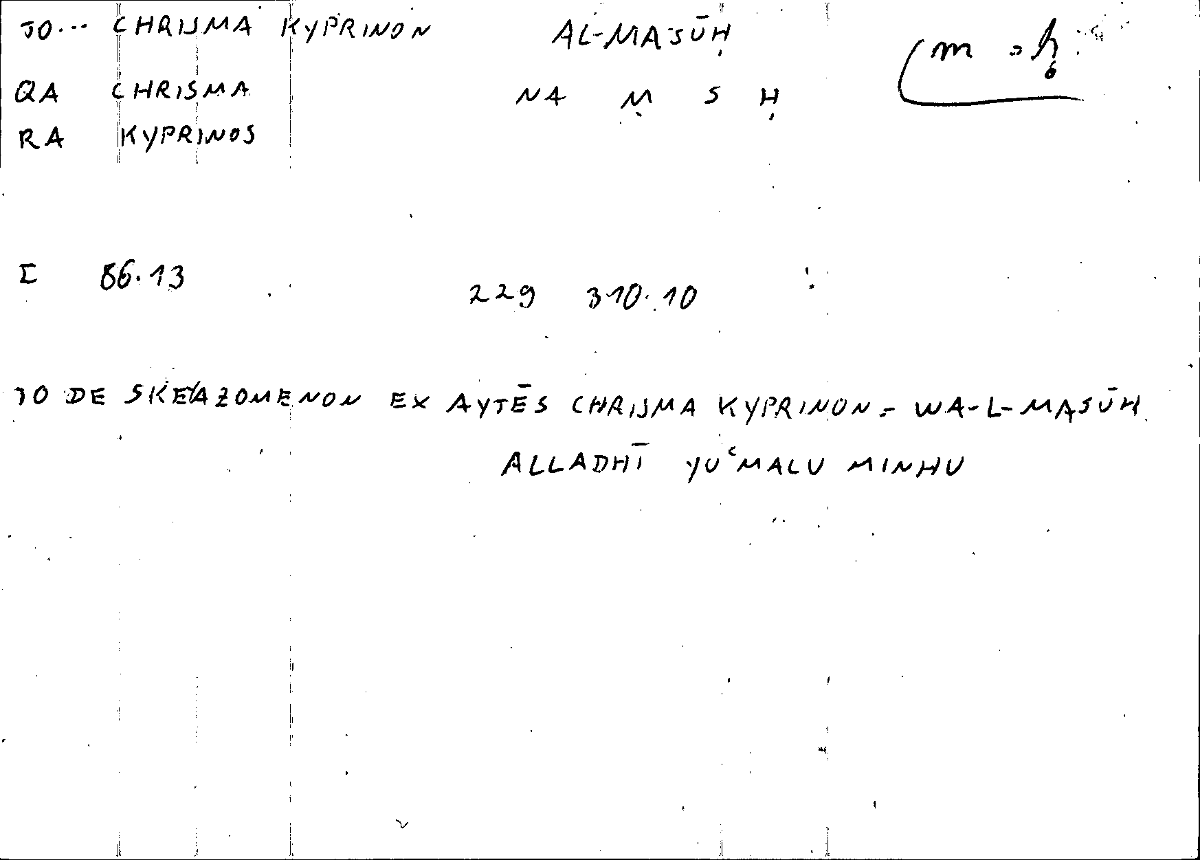 TO... CHRISMA KYPRINON AL-MASŪḤ
QA CHRISMA NA M S Ḥ
RA KYPRINOS
I 86.13
229 310.10
TO DE SKEYAZOMENON EX AYTĒS CHRISMA KYPRINON = WA-L-MASŪḤ
ALLADHĪ YUʿMALU MINHU